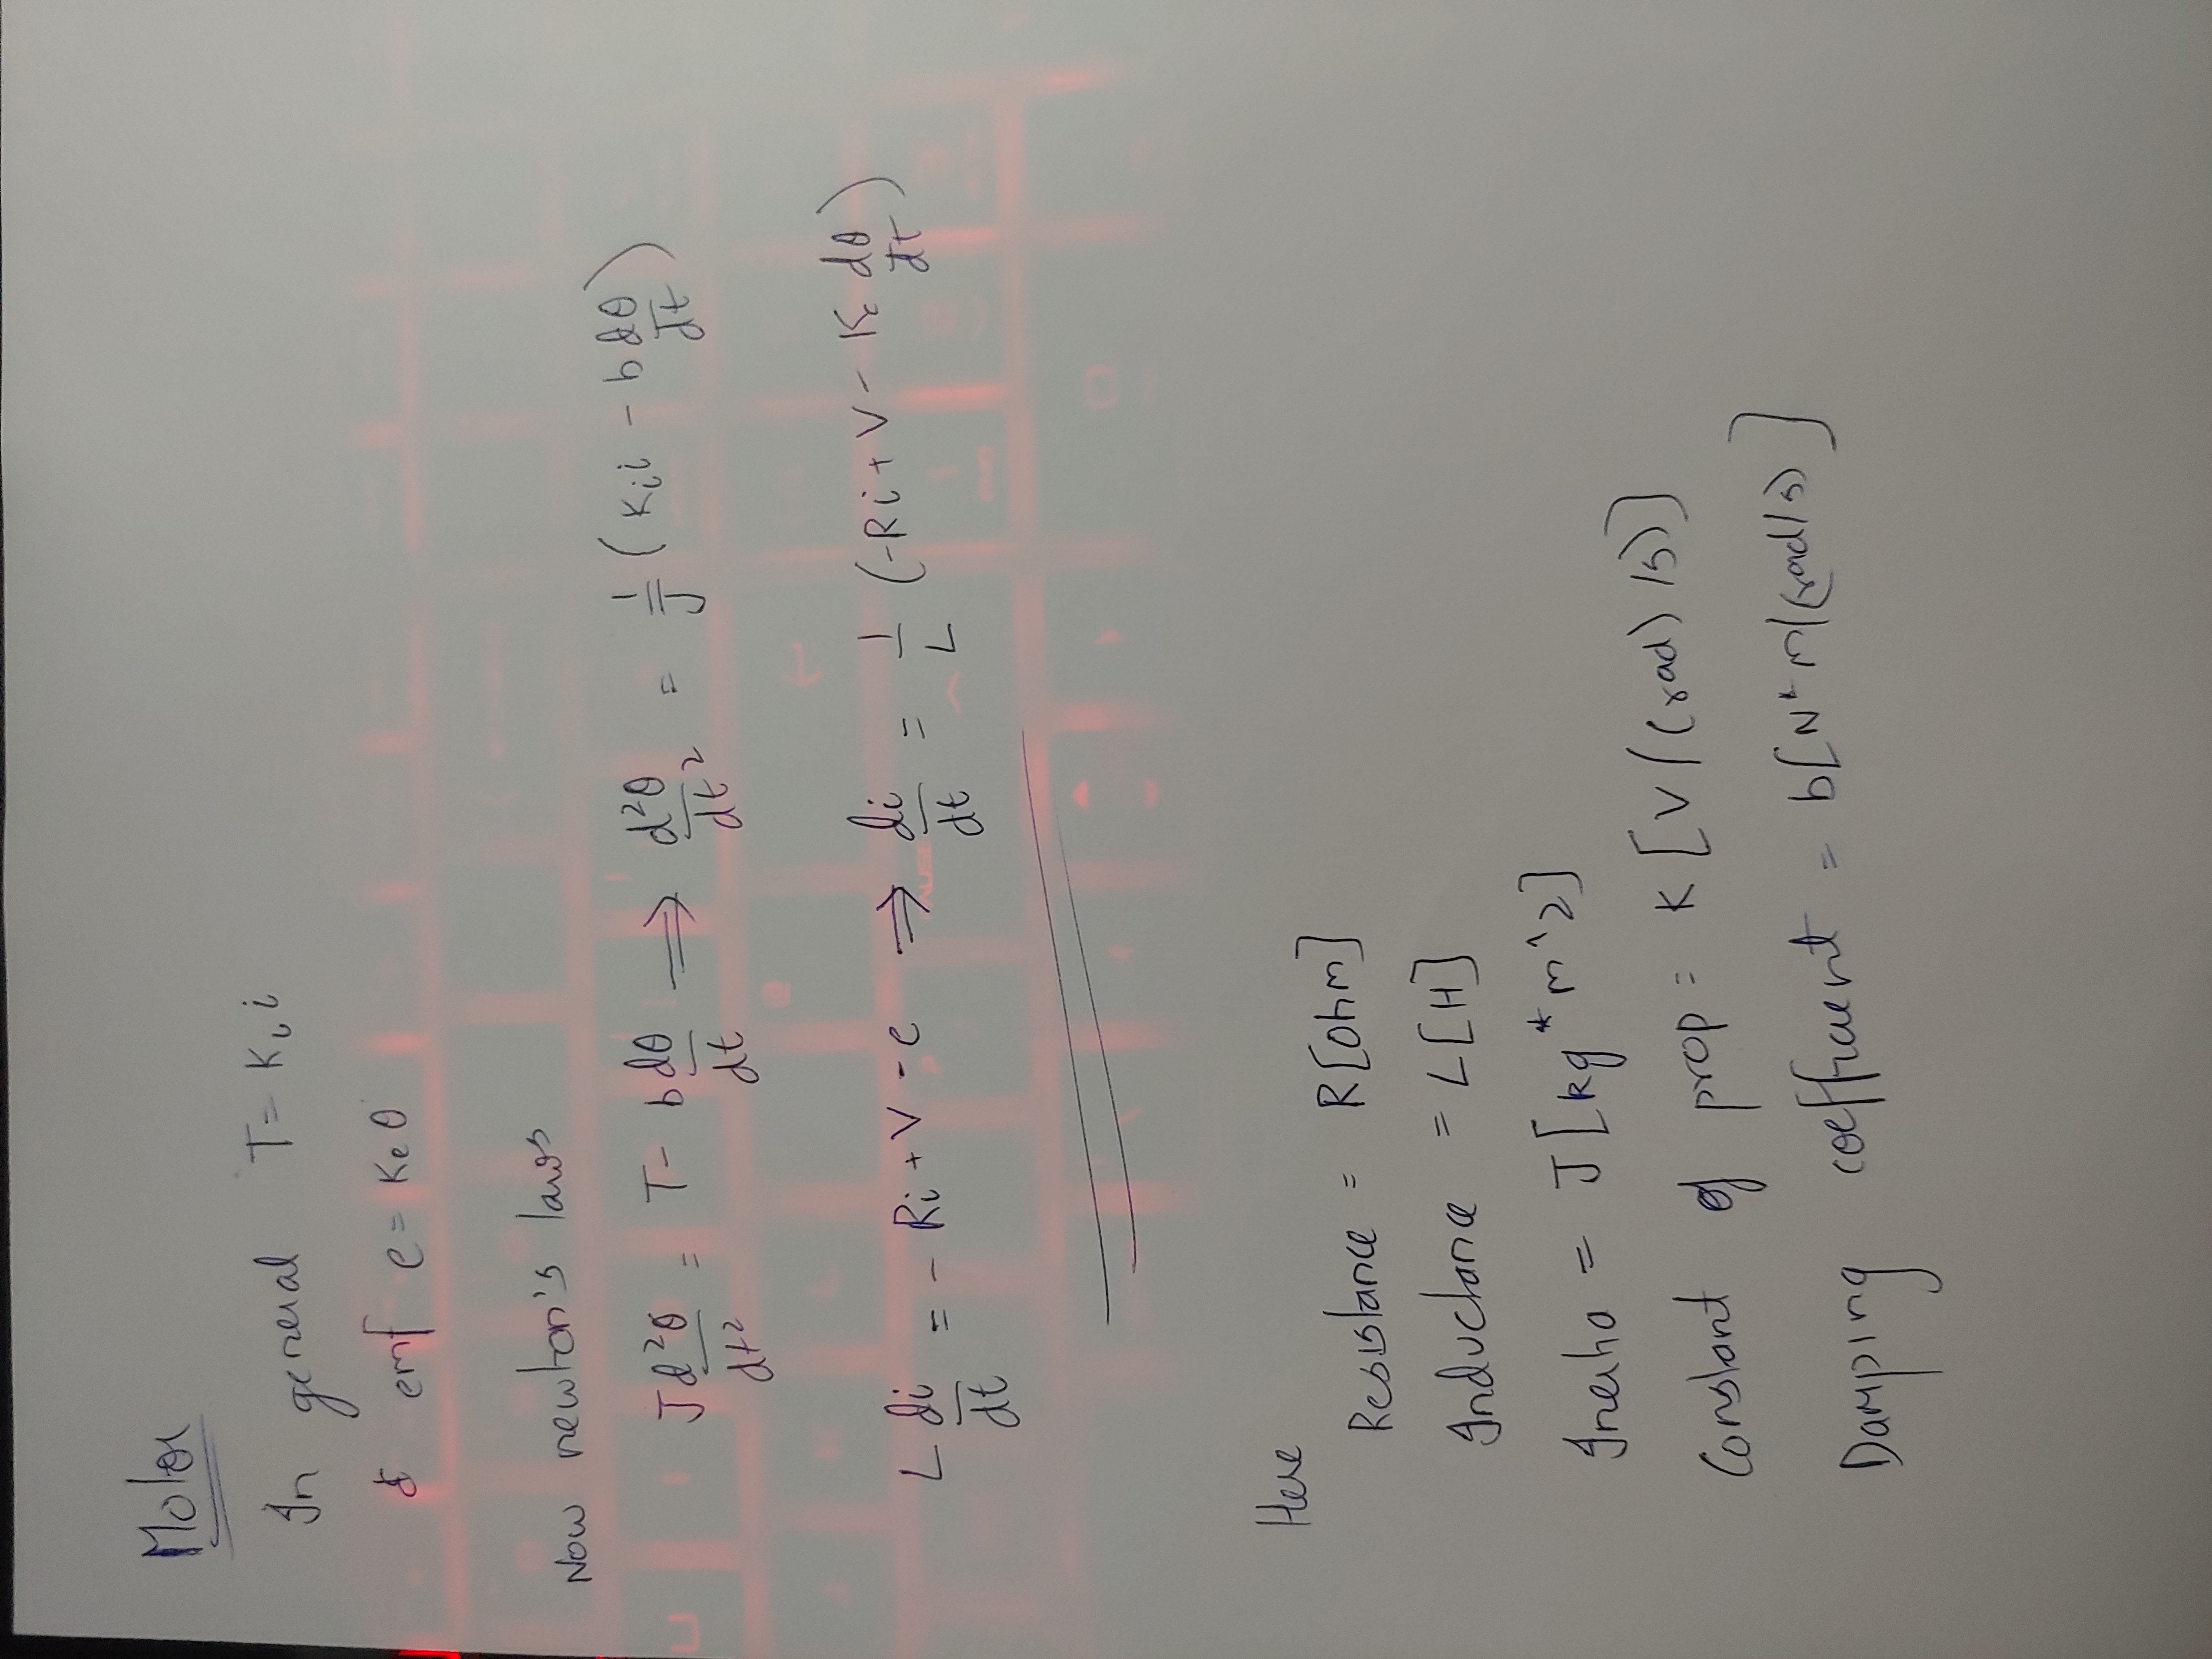 Motor
In general T = Kᵢ i
& emf e = Ke θ
Now newton's laws
J d²θ/dt² = T - b dθ/dt ⟹ d²θ/dt² = 1/J (Kᵢi - b dθ/dt)
L di/dt = - Ri + V - e ⟹ di/dt = 1/L (-Ri + V - Ke dθ/dt)
Here
Resistance = R[ohm]
Inductance = L[H]
Inertia = J[kg*m^2]
Constant of prop = K[V/(rad)/s)]
Damping coefficient = b[N*m/(rad/s)]